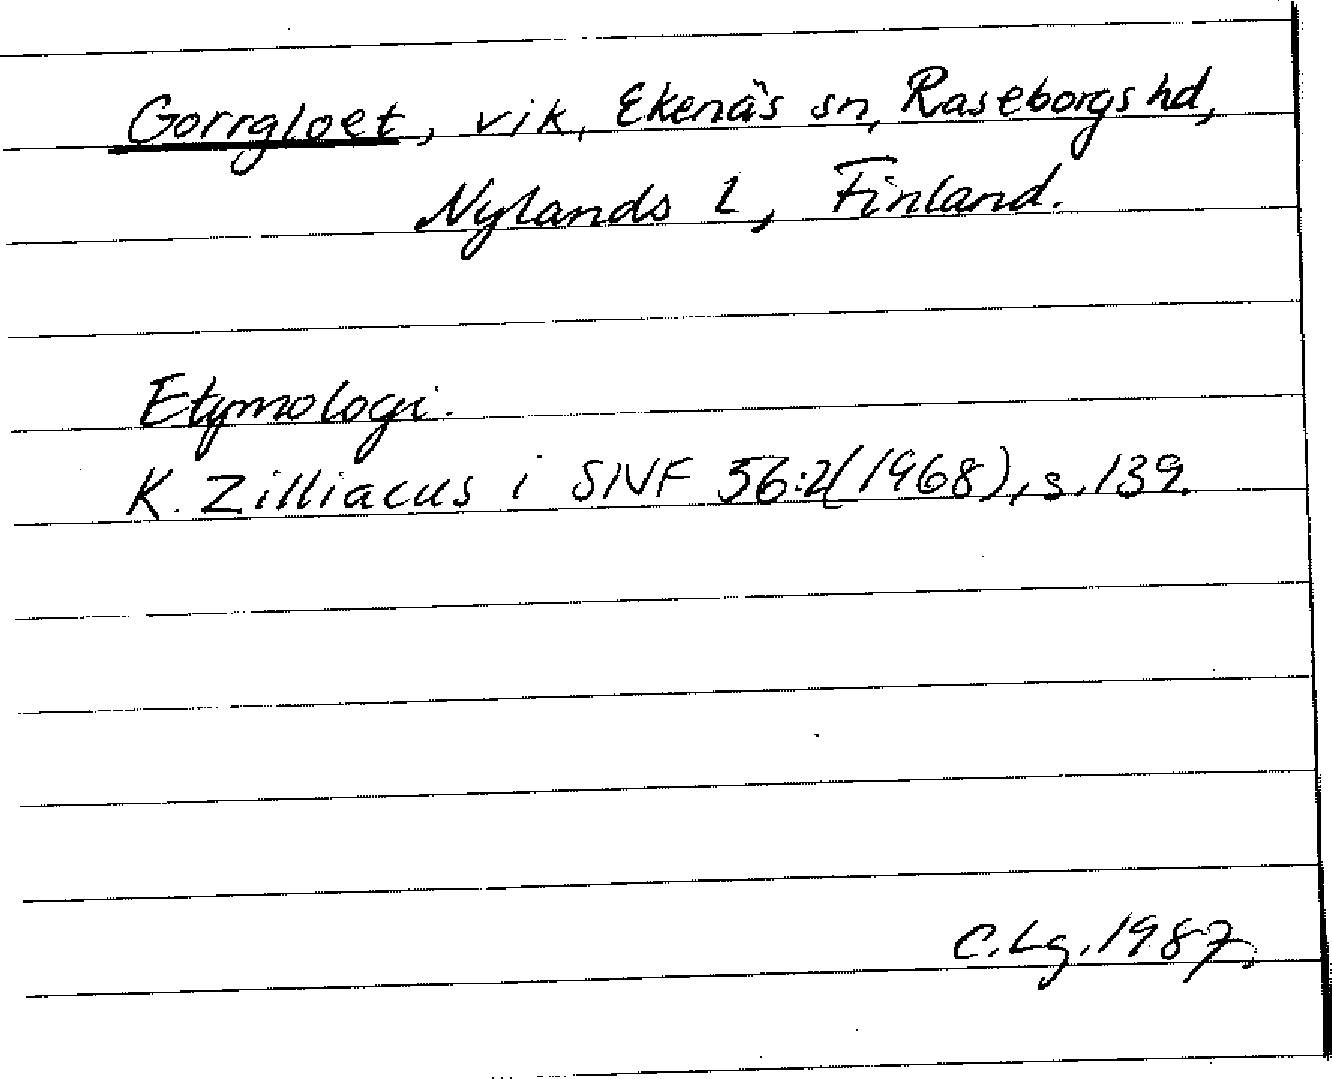 Gorrgloet, vik, Ekenäs sn, Raseborgs hd,
Nylands l, Finland.
Etymologi.
K. Zilliacus i SNF 56:2(1968), s. 139.
C. Lg. 1987.